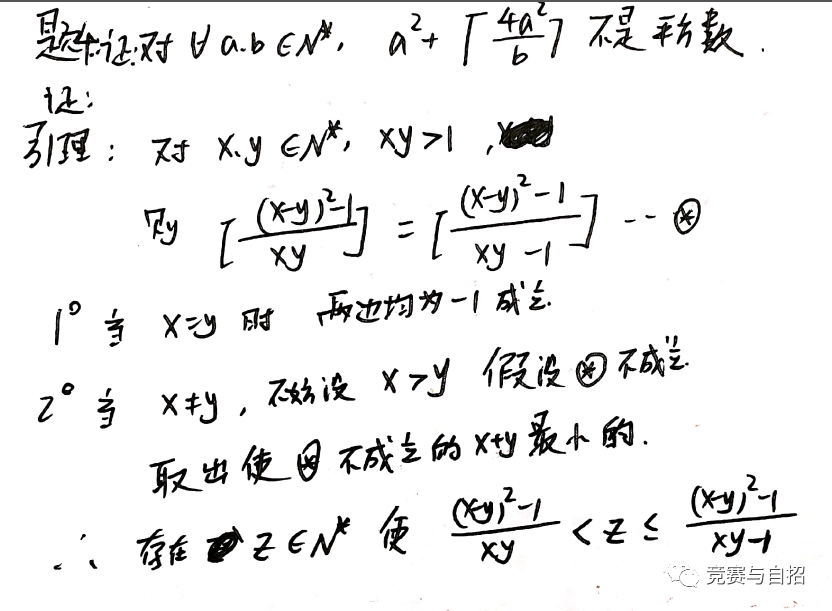 题意证:对 ∀ a.b ∈N*, a²+⌈4a²/b⌉ 不是平方数.
证:
引理: 对 x.y ∈N*, xy>1,
则 [((x-y)²-1)/(xy)] = [((x-y)²-1)/(xy-1)] -- ⊛
1° 当 x=y 时 两边均为-1 成立.
2° 当 x≠y, 不妨设 x>y 假设⊛不成立.
取出使⊛不成立的x+y最小的.
∴ 存在 z∈N* 使 ((x-y)²-1)/(xy) < z ≤ ((x-y)²-1)/(xy-1)
竞赛与自招